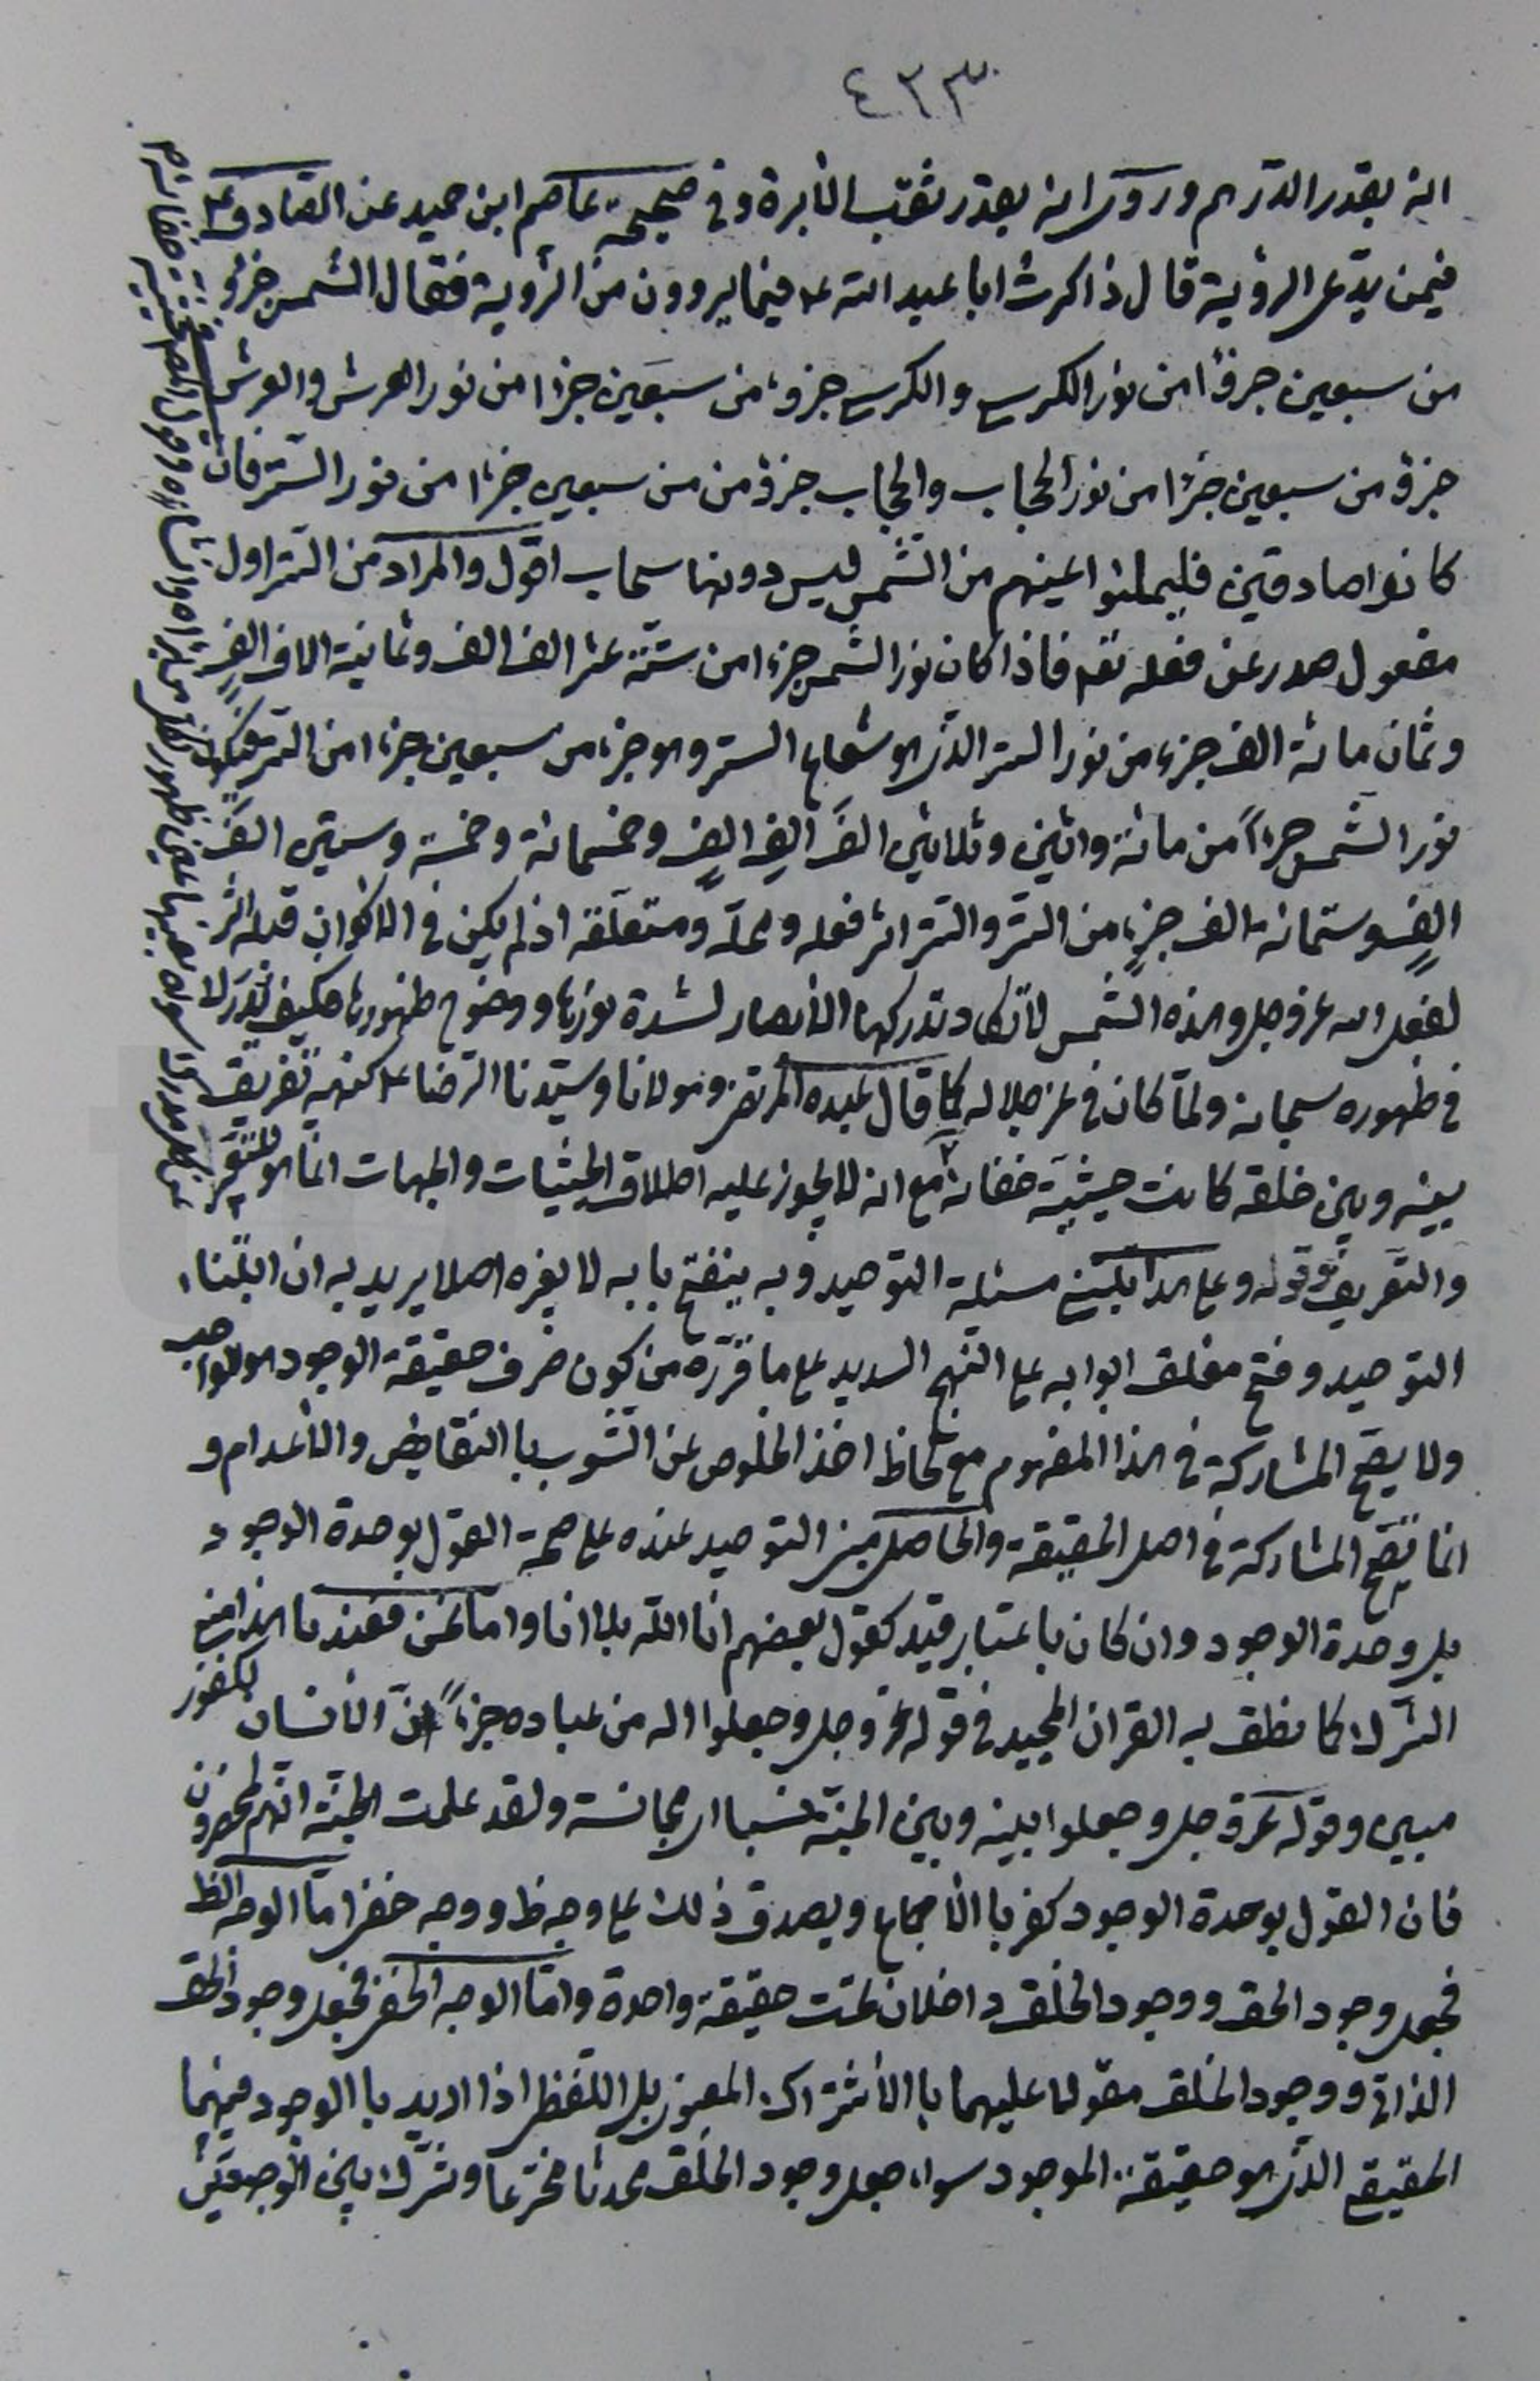 ٤٣٣
انه بقدر الدرهم وروى انه بقدر ثقب الأبرة وفى صحيحة عاصم ابن حميد عن الصادق ع
فيمن يدّعى الرؤية قال ذاكرت ابا عبد الله ع فيما يروون من الرؤية فقال الشمس جزؤ
من سبعين جزؤا من نور الكرسى والكرسى جزو من سبعين جزا من نور العرش والعرش
جزؤ من سبعين جزا من نور الحجاب والحجاب جزؤ من من سبعين جزءا من نور الستر فان
كانوا صادقين فليملئوا اعينهم من الشمس ليس دونها سحاب اقول والمراد من الستر اول
مفعول صدر عن فعله تعه فاذا كان نور الشمس جزءا من ستة عشر الف الف وثمانية الاف الفٍ
وثمان مائة الف جزء من نور الستر الذى هو شعاع الستر وهو جزء من سبعين جزءا من الستر فيكون
نور الشمس جزءاً من مائة واثنين وثلاثين الفَ الفِ الفٍ وخمسمائة وخمسة وستين الفَ
الفٍ وستمائة الف جزءٍ من الستر والستر اثر فعله ومحلّه ومتعلّقه اذ لم يكن فى الاكوان قبله اثر
لفعل الله عز وجل وهذه الشمس لاتكاد تدركها الأبصار لشدة نورها ووضوح ظهورها فكيف تدرك
فى ظهوره سبحانه ولمّا كان فى عز جلاله كما قال عبده المرتضى ومولانا وسيّدنا الرضا ع كنهه تفريق
بينه وبين خلقه كانت حيثية خفائه مع انه لايجوز عليه اطلاق الحيثيات والجهات انما هو للتفهيم
والتعريف وقوله وعلى هذا يبتنى مسئلة التوحيد وبه ينفتح بابه لا بغيره اصلا يريد به ان ابتناء
التوحيد وفتح مغلق ابوابه على النهج السديد على ما قرّره من كون صرف حقيقة الوجود هو الواجب
ولا يصح المشاركة فى هذا المفهوم مع لحاظ اخذ الخلوص عن الشوب با النقايض والأعدام و
انما تصح المشاركة فى اصل الحقيقة والحاصل مبنى التوحيد عنده على صحة القول بوحدة الوجود
بل وحدة الوجود وان كان باعتبار قيد كقول بعضهم انا الله بلا انا وامّا نحن فعندنا هذا من
الشرك كما نطق به القران المجيد فى قوله عز وجل وجعلوا له من عباده جزءاً انّ الأنسان لكفور
مبين وقوله عزّ وجل وجعلوا بينه وبين الجنّة نسبا اى مجانسة ولقد علمت الجنّة انّهم لمحضرون
فان القول بوحدة الوجود كفر با الأجماع ويصدق ذلك على وجه ظ ووجه خفى امّا الوجه الظ
فجعل وجود الحق ووجود الخلق داخلان تحت حقيقة واحدة وامّا الوجه الخفى فجعل وجود الحق
الذاتى ووجود الخلق مقولا عليهما با الأشتراك المعنوى بل اللفظى اذا اريد با الوجود فيهما
الحقيقى الذى هو حقيقة الموجود سواء جعل وجود الخلق محدثا مخترعا وتشرّك بين الوجودين